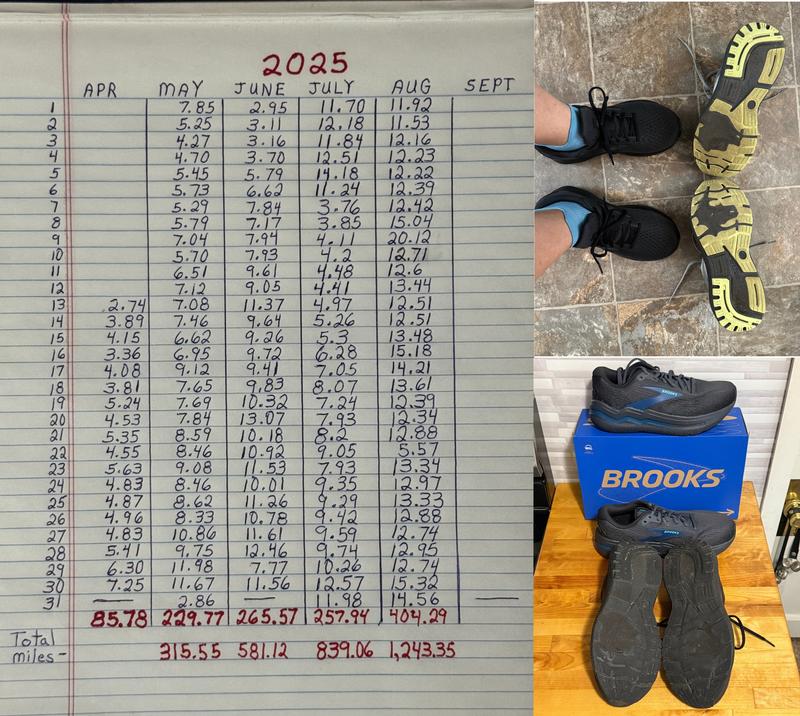 2025
APR MAY JUNE JULY AUG SEPT
1 7.85 2.95 11.70 11.92
2 5.25 3.11 12.18 11.53
3 4.27 3.16 11.84 12.16
4 4.70 3.70 12.51 12.23
5 5.45 5.79 14.18 12.22
6 5.73 6.62 11.24 12.39
7 5.29 7.84 3.76 12.42
8 5.79 7.17 3.85 15.04
9 7.04 7.94 4.11 20.12
10 5.70 7.93 4.2 12.71
11 6.51 9.61 4.48 12.6
12 7.12 9.05 4.41 13.44
13 2.74 7.08 11.37 4.97 12.51
14 3.89 7.46 9.64 5.26 12.51
15 4.15 6.62 9.26 5.3 13.48
16 3.36 6.95 9.72 6.28 15.18
17 4.08 9.12 9.41 7.05 14.21
18 3.81 7.65 9.83 8.07 13.61
19 5.24 7.69 10.32 7.24 12.39
20 4.53 7.84 13.07 7.93 12.34
21 5.35 8.59 10.18 8.2 12.88
22 4.55 8.46 10.92 9.05 5.57
23 5.63 9.08 11.53 7.93 13.34
24 4.83 8.46 10.01 9.35 12.97
25 4.87 8.62 11.26 9.29 13.33
26 4.96 8.33 10.78 9.42 12.88
27 4.83 10.86 11.61 9.59 12.74
28 5.41 9.75 12.46 9.74 12.95
29 6.30 11.98 7.77 10.26 12.74
30 7.25 11.67 11.56 12.57 15.32
31 — 2.86 — 11.98 14.56 —
85.78 229.77 265.57 257.94 404.29
Total miles- 315.55 581.12 839.06 1,243.35
BROOKS
BROOKS
BROOKS